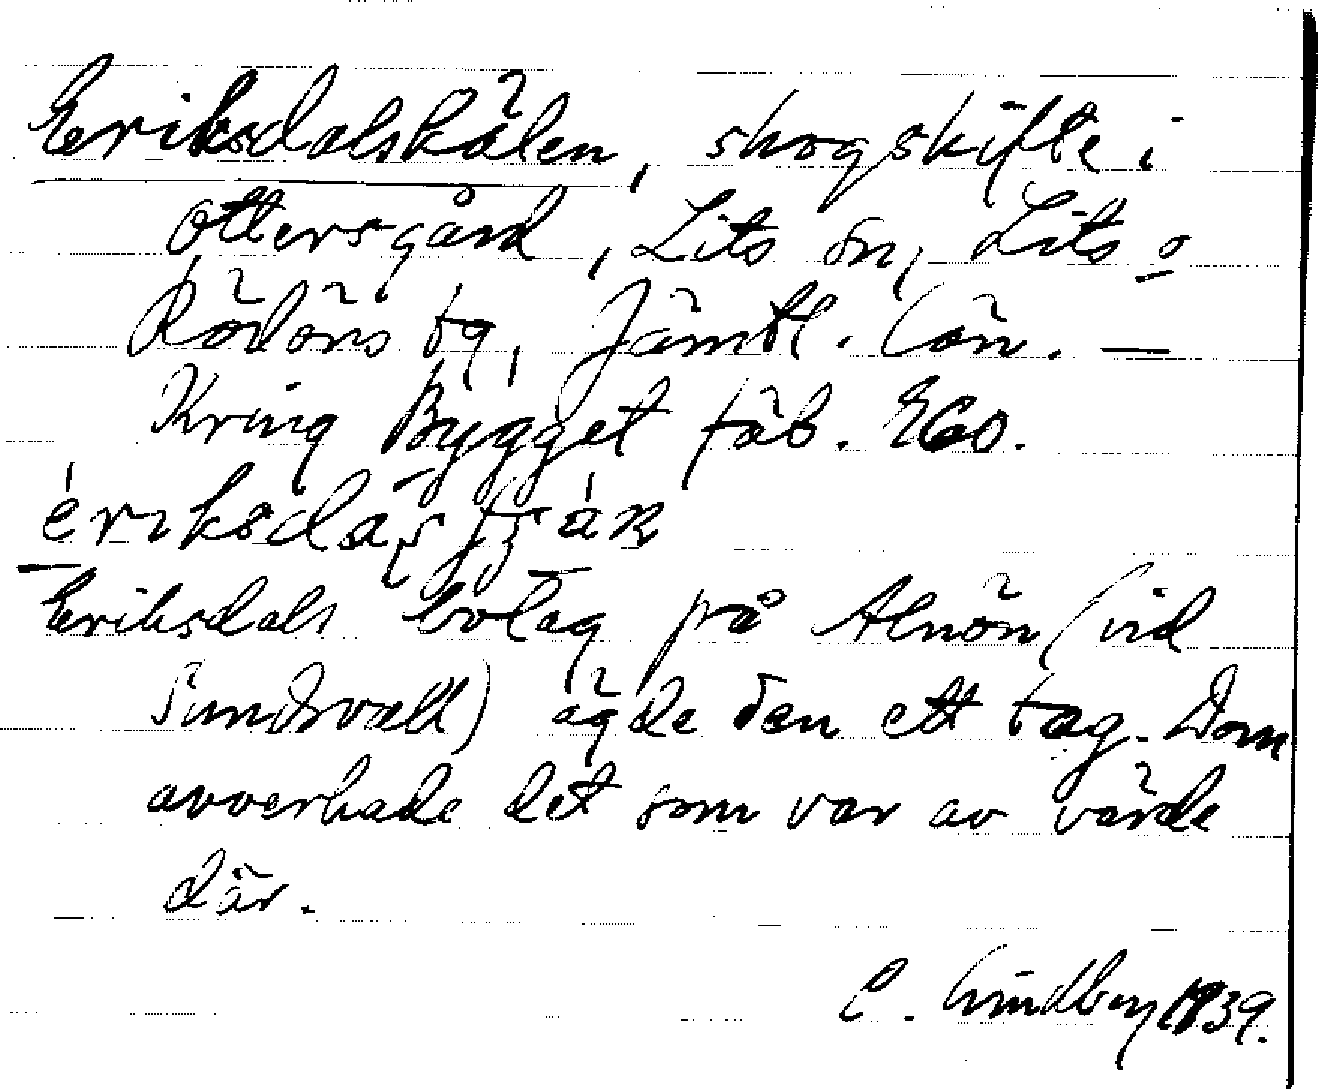 Eriksdalskälen, skogskifte i
Ottersgård, Lits sn, Lits o
Rödöns tg, Jämtl. län. —
Kring Bygget fäb. E60.
Eriksdals bolag på Alnön (vid
Sundsvall) ägde den ett tag. Dom
avverkade det som var av värde
där.
C. Lindberg 1939.